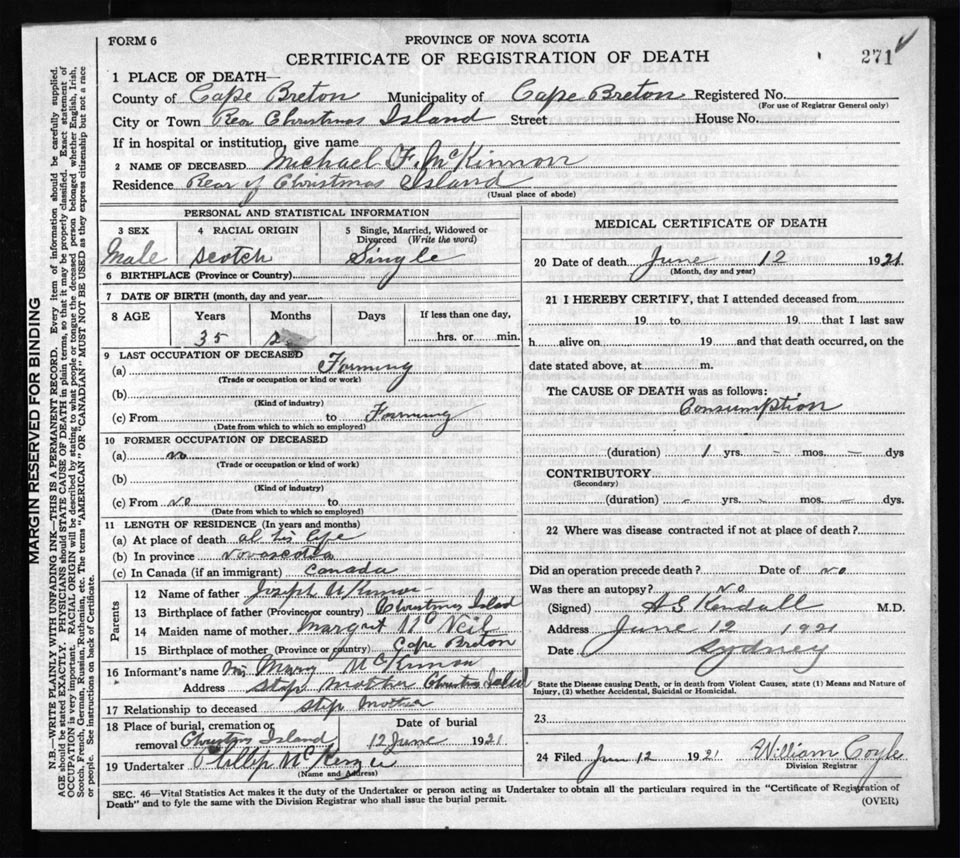 FORM 6
PROVINCE OF NOVA SCOTIA
CERTIFICATE OF REGISTRATION OF DEATH
271
1 PLACE OF DEATH—
County of Cape Breton Municipality of Cape Breton Registered No.
(For use of Registrar General only)
City or Town Rear Christmas Island Street House No.
If in hospital or institution, give name
2 NAME OF DECEASED Michael F. McKinnon
Residence Rear of Christmas Island
(Usual place of abode)
PERSONAL AND STATISTICAL INFORMATION
3 SEX 4 RACIAL ORIGIN 5 Single, Married, Widowed or Divorced (Write the word)
Male Scotch Single
6 BIRTHPLACE (Province or Country)
7 DATE OF BIRTH (month, day and year)
8 AGE Years Months Days If less than one day,
35 hrs. or min.
9 LAST OCCUPATION OF DECEASED
(a) Farming
(Trade or occupation or kind or work)
(b)
(Kind of industry)
(c) From to Farming
(Date from which to which so employed)
10 FORMER OCCUPATION OF DECEASED
(a) no
(Trade or occupation or kind of work)
(b)
(Kind of industry)
(c) From no to
(Date from which to which so employed)
11 LENGTH OF RESIDENCE (In years and months)
(a) At place of death al his life
(b) In province novascotia
(c) In Canada (if an immigrant) Canada
Parents
12 Name of father Joseph McKinnon
13 Birthplace of father (Province or country) Christmas Island
14 Maiden name of mother Margret McNeil
15 Birthplace of mother (Province or country) Cape Breton
16 Informant's name Mary McKinnon
Address Step Mother Christmas Island
17 Relationship to deceased Step Mother
18 Place of burial, cremation or removal Christmas Island
Date of burial 12 June 1921
19 Undertaker Phillip
(Name and Address)
MEDICAL CERTIFICATE OF DEATH
20 Date of death June 12 1921
(Month, day and year)
21 I HEREBY CERTIFY, that I attended deceased from
19 to 19 that I last saw
h alive on 19 and that death occurred, on the
date stated above, at m.
The CAUSE OF DEATH was as follows:
Consumption
(duration) 1 yrs. – mos. – dys
CONTRIBUTORY
(Secondary)
(duration) – yrs. – mos. – dys.
22 Where was disease contracted if not at place of death?
Did an operation precede death? Date of no
Was there an autopsy? No
(Signed) A S Kendall M.D.
Address June 12 1921
Date Sydney
State the Disease causing Death, or in death from Violent Causes, state (1) Means and Nature of
Injury, (2) whether Accidental, Suicidal or Homicidal.
23
24 Filed June 12 1921 William Coyle
Division Registrar
SEC. 46—Vital Statistics Act makes it the duty of the Undertaker or person acting as Undertaker to obtain all the particulars required in the "Certificate of Registration of
Death" and to fyle the same with the Division Registrar who shall issue the burial permit.
(OVER)
MARGIN RESERVED FOR BINDING
N.B.—WRITE PLAINLY WITH UNFADING INK—THIS IS A PERMANENT RECORD. Every item of information should be carefully supplied.
AGE should be stated EXACTLY. PHYSICIANS should STATE CAUSE OF DEATH in plain terms, so that it may be properly classified. Exact statement of
OCCUPATION is very important. RACIAL ORIGIN will be described by stating to what people or tongue the deceased person belonged whether English, Irish,
Scotch, French, German, Russian, Ruthenian, etc. The terms "AMERICAN" OR "CANADIAN" MUST NOT BE USED as they express citizenship but not a race
or people. See instructions on back of Certificate.